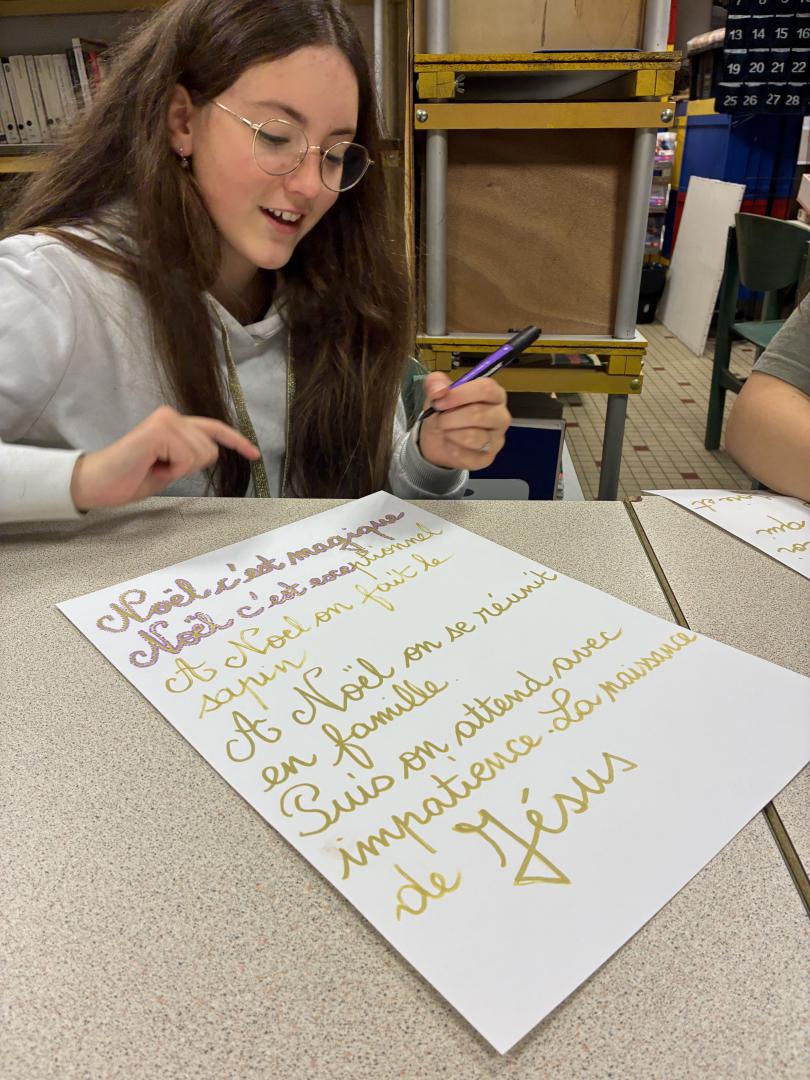 Noël c'est magique
Noël c'est exceptionnel
A Noël on fait le
sapin
A Noël on se réunit
en famille.
Puis on attend avec
impatience. La naissance
de Jésus
13 14 15 16
19 20 21 22
25 26 27 28